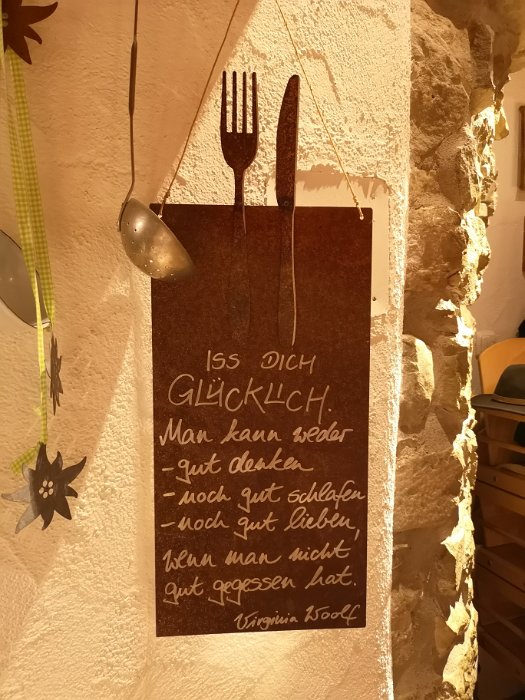 ISS DICH
GLÜCKLICH.
Man kann weder
- gut denken
- noch gut schlafen
- noch gut lieben,
wenn man nicht
gut gegessen hat.
Virginia Woolf